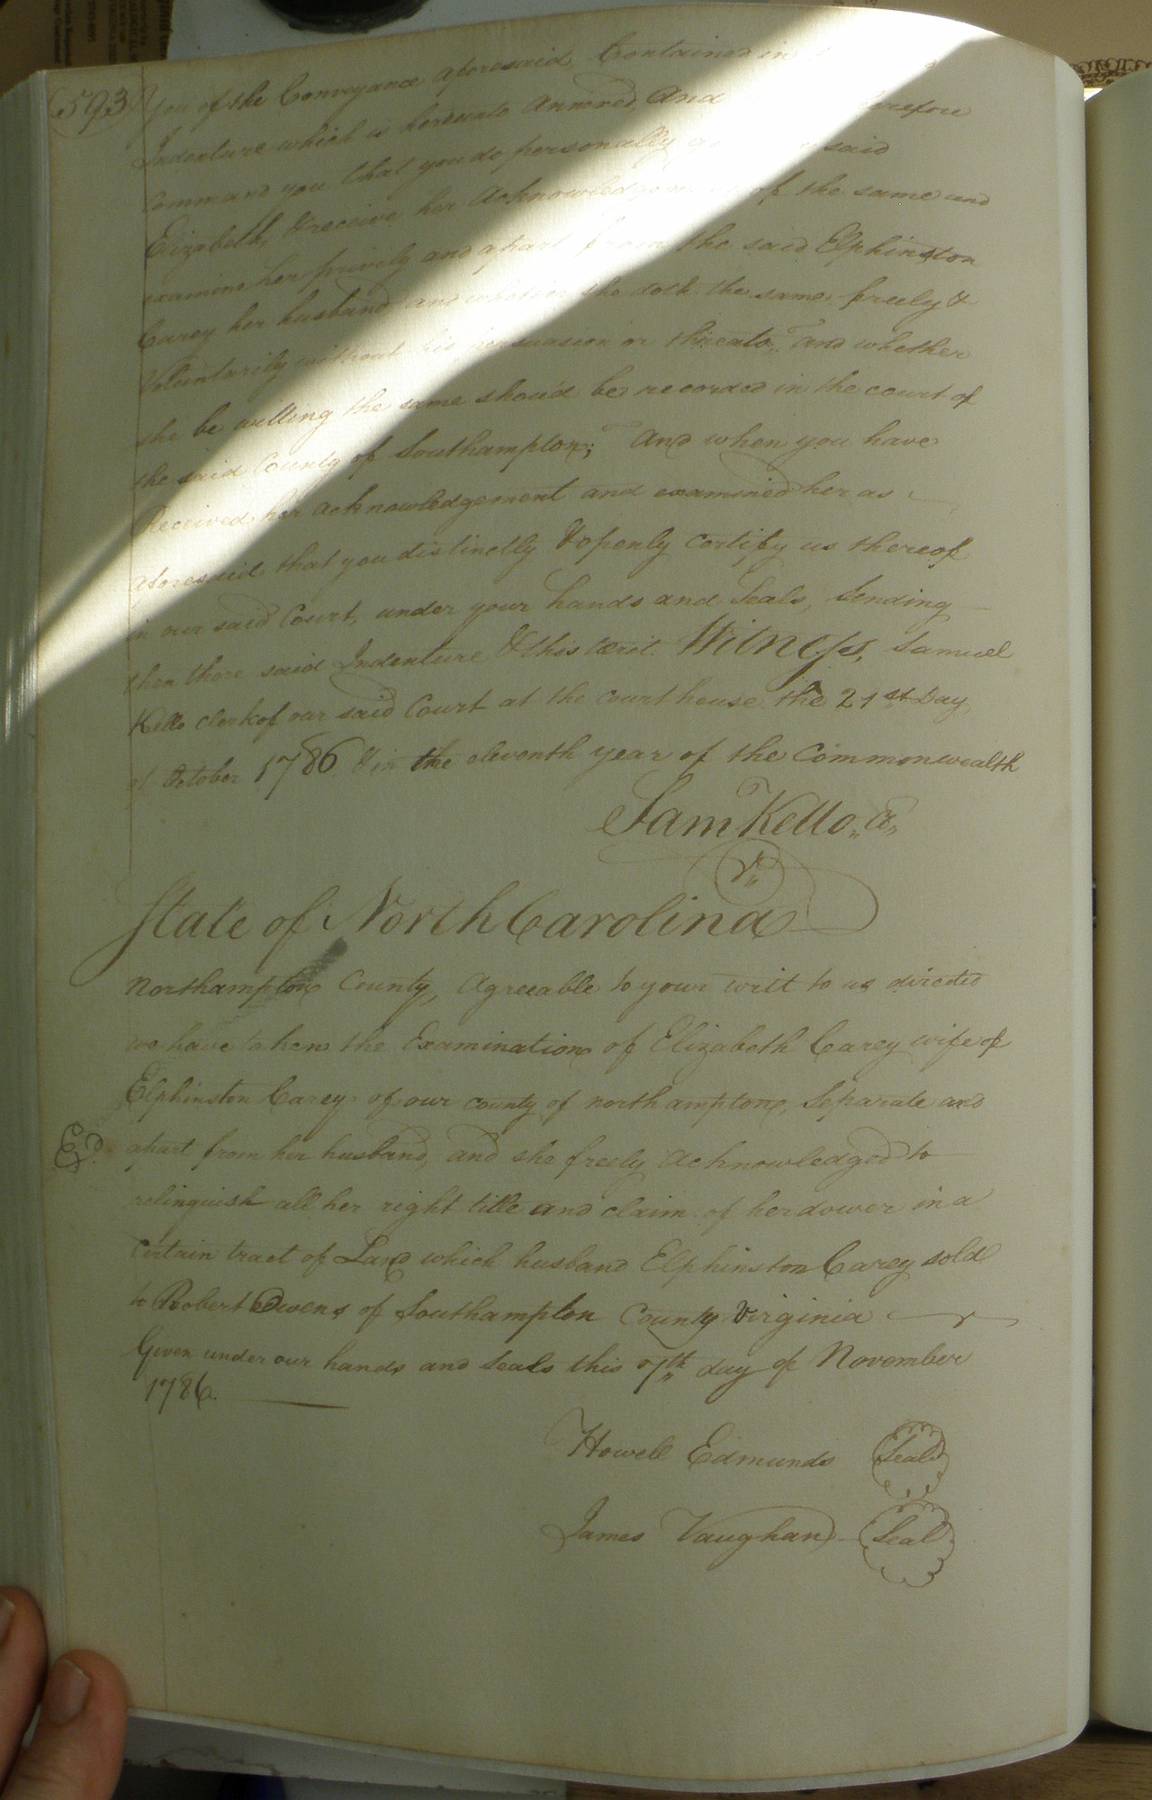 593
You of the Conveyance aforesaid Contained in
Indenture which is hereunto annexed, And
command you that you do personally said
Elizabeth, & receive her acknowledgement of the same and
examine her privily and apart from the said Elphinston
Carey her husband and whether she doth the same freely &
Voluntarily without his persuasion or threats, and whether
she be willing the same shou'd be recorded in the court of
the said County of Southampton; And when you have
Received her acknowledgement and examined her as
aforesaid that you distinctly & openly certify us thereof
in our said Court, under your hands and Seals, Sending
then there said Indenture & this writ. Witness, Samuel
Kello clerk of our said Court at the courthouse the 21st Day
of October 1786 & in the eleventh year of the Commonwealth
Sam Kello
State of North Carolina
Northampton County, Agreeable to your writ to us directed
we have taken the Examination of Elizabeth Carey wife of
Elphinston Carey of our county of northampton, Separate and
Ed. apart from her husband, and she freely acknowledged to
relinquish all her right title and claim of her dower in a
certain tract of Land which husband Elphinston Carey sold
to Robert Owens of Southampton County Virginia
Given under our hands and Seals this 7th day of November
1786.
Howell Edmunds Seal
James Vaughan Seal